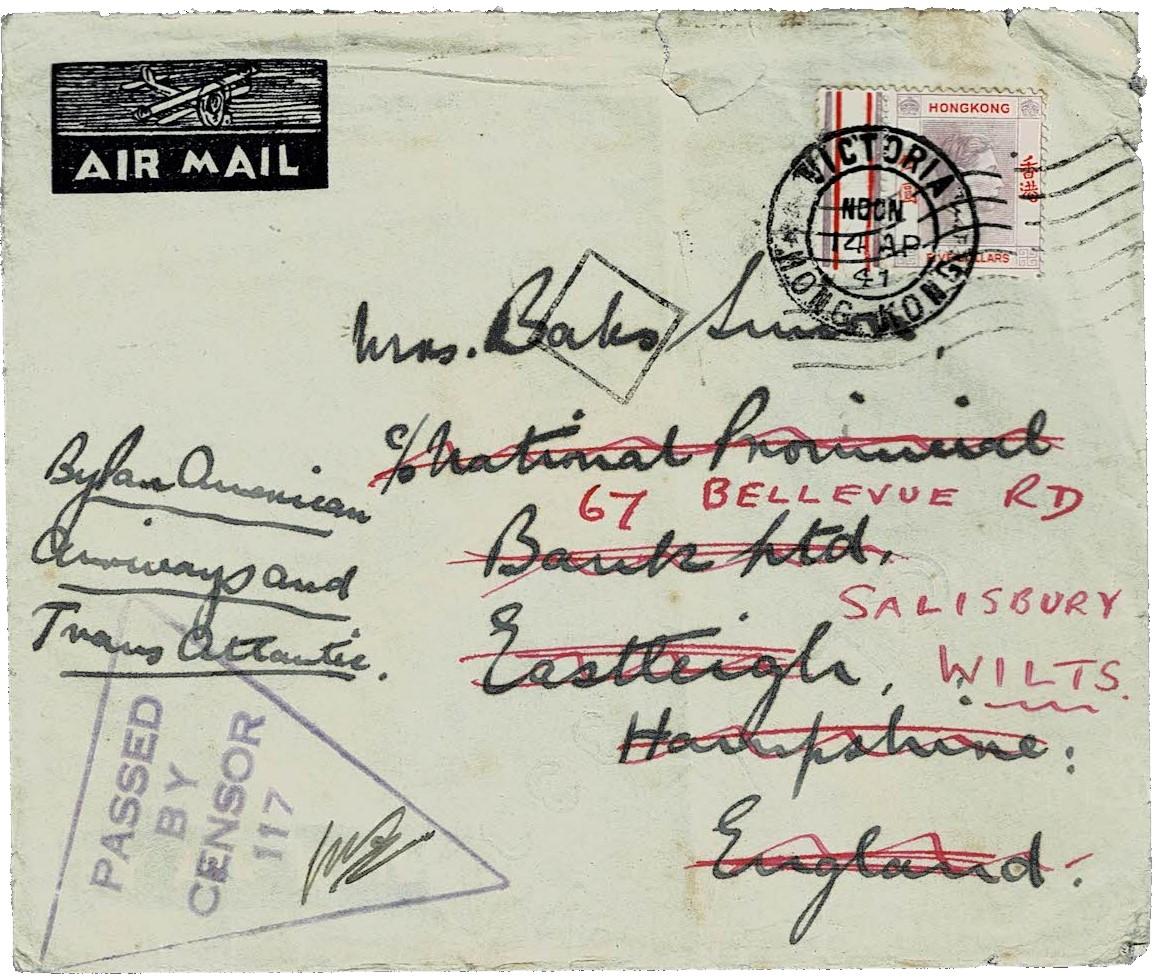 AIR MAIL
HONGKONG
香港
圓
FIVE DOLLARS
VICTORIA
NOON
14 AP
41
HONG KONG
Mrs.
c/o National Provincial
67 BELLEVUE RD
Bank Ltd.
SALISBURY
Eastleigh,
WILTS.
Hampshire.
England.
By Pan American
Airways and
Trans Atlantic.
PASSED
BY
CENSOR
117